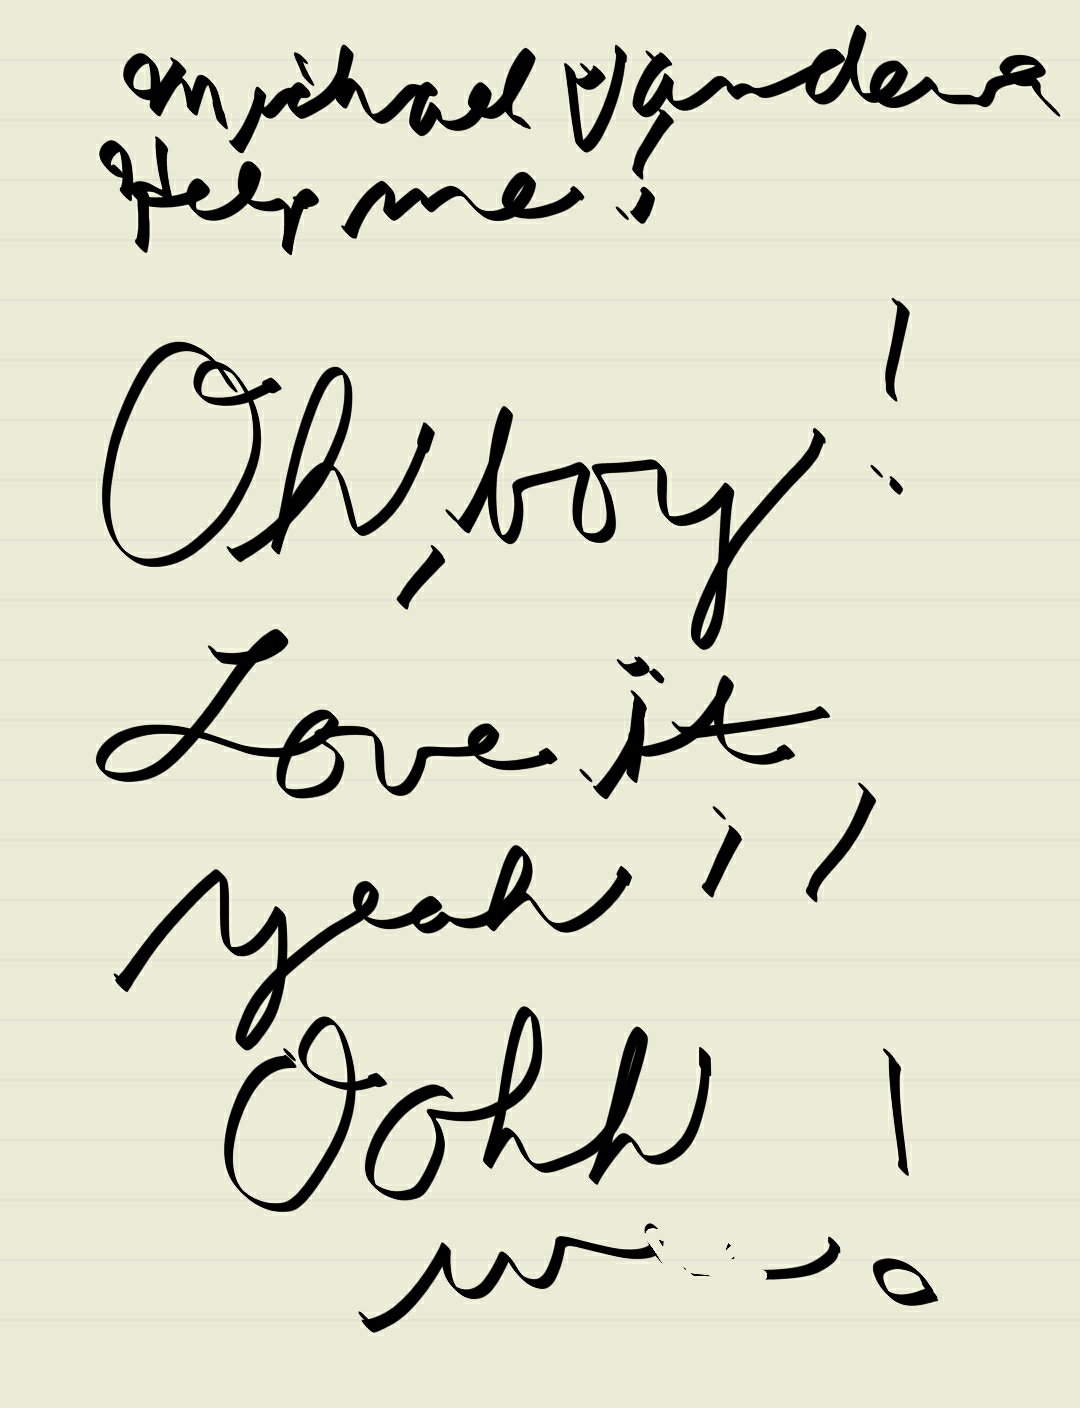 Michael
Help me!
Oh, boy!
Love it
yeah!!
Oohh!